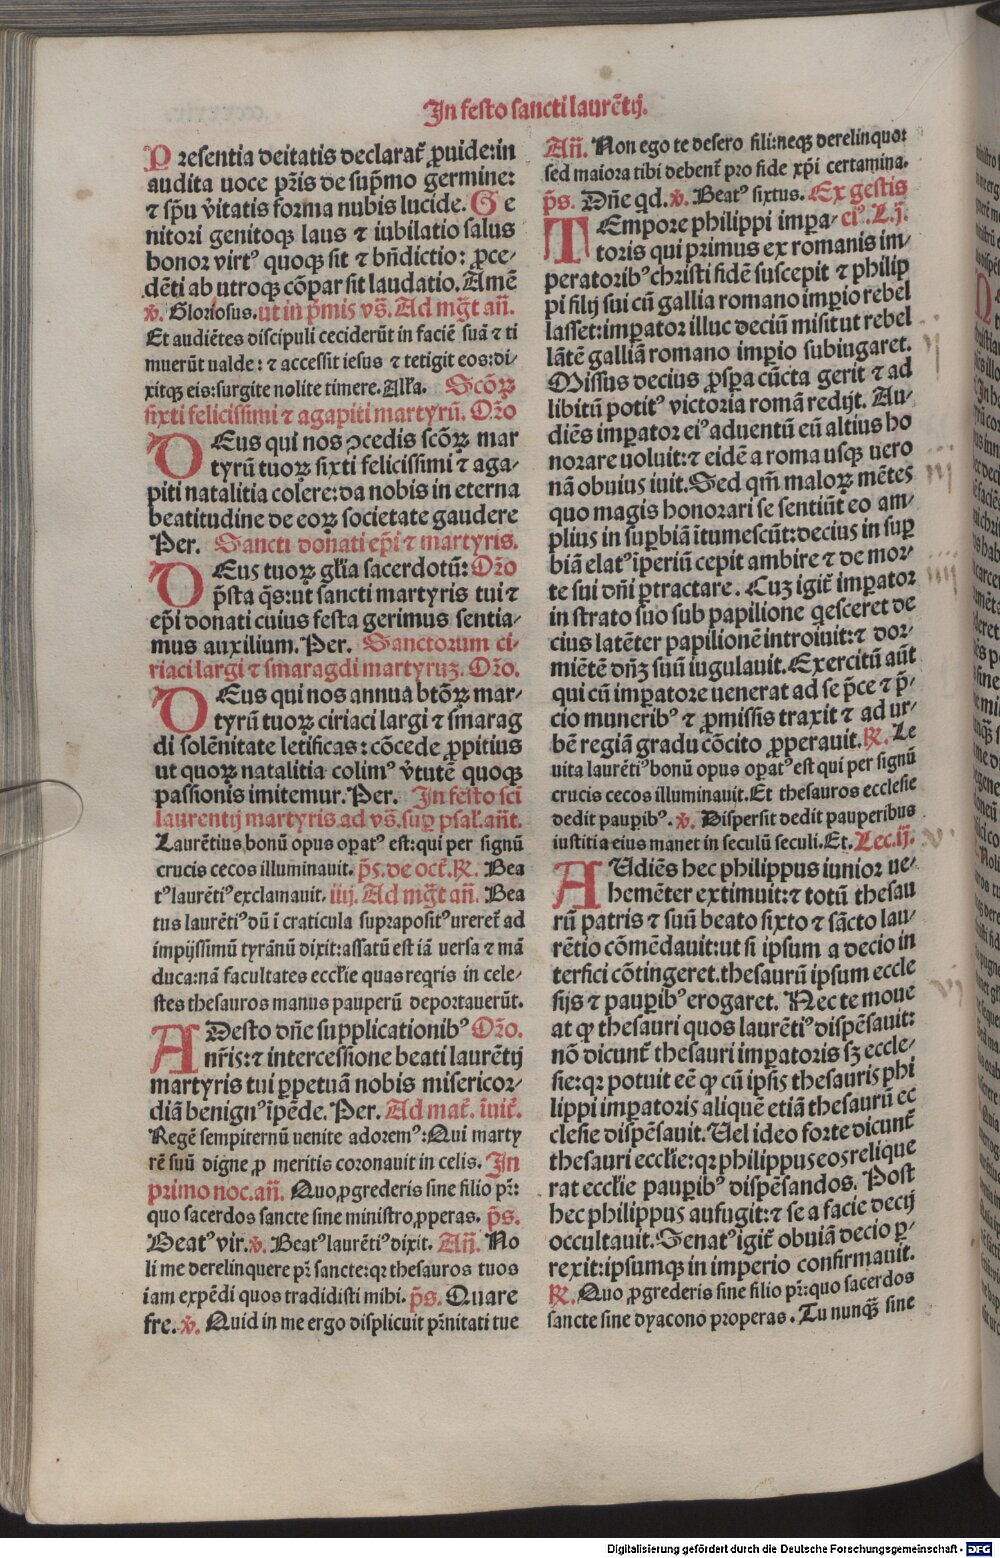 In festo sancti laurẽtij.
Presentia deitatis declarat̃ ꝓuide:in
audita uoce pr̃is de sup̃mo germine:
⁊ sp̃u v̓itatis forma nubis lucide. Ge
nitori genitoqꝫ laus ⁊ iubilatio salus
honor virtꝰ quoqꝫ sit ⁊ bñdictio: ꝓce-
dẽti ab utroqꝫ cõpar sit laudatio. Amẽ
v̓. Gloriosus. ut in p̃mis vs̃. Ad mg̃t añ.
Et audiẽtes discipuli ceciderũt in faciẽ suã ⁊ ti
muerũt ualde: ⁊ accessit iesus ⁊ tetigit eos:di-
xitqꝫ eis:surgite nolite timere. Alľa. Scõꝝ
sixti felicissimi ⁊ agapiti martyrũ. Or̃o
DEus qui nos ꝯcedis scõꝝ mar
tyrũ tuoꝝ sixti felicissimi ⁊ aga-
piti natalitia colere:da nobis in eterna
beatitudine de eoꝝ societate gaudere
Per. Sancti donati ep̃i ⁊ martyris.
DEus tuoꝝ gľia sacerdotũ: Or̃o
p̃sta q̃s:ut sancti martyris tui ⁊
ep̃i donati cuius festa gerimus sentia-
mus auxilium. Per. Sanctorum ci-
riaci largi ⁊ smaragdi martyruꝫ. Or̃o.
DEus qui nos annua bt̃oꝝ mar-
tyrũ tuoꝝ ciriaci largi ⁊ smarag
di solẽnitate letificas: cõcede ꝓpitius
ut quoꝝ natalitia colimꝰ v̓tutẽ quoqꝫ
passionis imitemur. Per. In festo sci
laurentij martyris ad vs̃. suꝑ psaľ. añt.
Laurẽtius bonũ opus oꝑatꝰ est:qui per signũ
crucis cecos illuminauit. p̃s. de oct̃. ℟. Bea
tꝰ laurẽtiꝰ exclamauit. iiij. Ad mg̃t añ. Bea
tus laurẽtiꝰ dũ ĩ craticula suprapositꝰureret̃ ad
impijssimũ tyrãnũ dixit:assatũ est iã uersa ⁊ mã
duca:nã facultates eccľie quas reqris in cele-
stes thesauros manus pauperũ deportauerũt.
ADesto dñe supplicationibꝰ Or̃o.
nr̃is:⁊ intercessione beati laurẽtij
martyris tui ꝑpetuã nobis misericor-
diã benignꝰ ĩpẽde. Per. Ad mat̃. ĩuit̃.
Regẽ sempiternũ uenite adoremꝰ:Qui marty
rẽ suũ digne ꝓ meritis coronauit in celis. In
primo noc. añ. Quo ꝓgrederis sine filio pr̃:
quo sacerdos sancte sine ministro ꝓperas. p̃s.
Beatꝰ vir. v̓. Beatꝰ laurẽtiꝰ dixit. Añ. No
li me derelinquere pr̃ sancte:qꝛ thesauros tuos
iam expẽdi quos tradidisti mihi. p̃s. Quare
fre. v̓. Quid in me ergo displicuit pr̃nitati tue
Añ. Non ego te desero fili:neqꝫ derelinquo:
sed maiora tibi debent̃ pro fide xp̃i certamina.
p̃s. Dñe qd. v̓. Beatꝰ sixtus. Ex gestis
TEmpore philippi impa- eiꝰ. L.j.
toris qui primus ex romanis im-
peratoribꝰ christi fidẽ suscepit ⁊ philip
pi filij sui cũ gallia romano imꝑio rebel
lasset:imꝑator illuc deciũ misit ut rebel
lãtẽ galliã romano imꝑio subiugaret.
Missus decius ꝓspa cũcta gerit ⁊ ad
libitũ potitꝰ victoria romã redijt. Au-
diẽs imꝑator eiꝰ aduentũ eũ altius ho
norare uoluit:⁊ eidẽ a roma usqꝫ uero
nã obuius iuit. Sed qm̃ maloꝝ mẽtes
quo magis honorari se sentiũt eo am-
plius in suꝑbiã ĩtumescũt:decius in suꝑ
biã elatꝰ ĩperiũ cepit ambire ⁊ de mor-
te sui dñi ꝑtractare. Cuꝫ igit̃ imꝑator
in strato suo sub papilione qesceret de
cius latẽter papilionẽ introiuit:⁊ dor-
miẽtẽ dñꝫ suũ iugulauit. Exercitũ aũt
qui cũ imꝑatore uenerat ad se p̃ce ⁊ p̃-
cio muneribꝰ ⁊ ꝓmissis traxit ⁊ ad ur-
bẽ regiã gradu cõcito ꝓperauit. ℟. Le
uita laurẽtiꝰ bonũ opus oꝑatꝰ est qui per signũ
crucis cecos illuminauit. Et thesauros ecclesie
dedit pauꝑibꝰ. v̓. Dispersit dedit pauperibus
iustitia eius manet in seculũ seculi. Et. Lec. ij.
AUdiẽs hec philippus iunior ue-
hemẽter extimuit:⁊ totũ thesau
rũ patris ⁊ suũ beato sixto ⁊ sãcto lau-
rẽtio cõmẽdauit:ut si ipsum a decio in
terfici cõtingeret. thesaurũ ipsum eccle
sijs ⁊ pauꝑibꝰ erogaret. Nec te moue
at ꝙ thesauri quos laurẽtiꝰ dispẽsauit:
nõ dicunt̃ thesauri imꝑatoris sꝫ eccle-
sie:qꝛ potuit eẽ ꝙ cũ ipsis thesauris phi
lippi imꝑatoris aliquẽ etiã thesaurũ ec
clesie dispẽsauit. Uel ideo forte dicunt̃
thesauri eccľie:qꝛ philippus eos relique
rat eccľie pauꝑibꝰ dispẽsandos. Post
hec philippus aufugit:⁊ se a facie decij
occultauit. Senatꝰ igit̃ obuiã decio ꝑ-
rexit:ipsumqꝫ in imperio confirmauit.
℟. Quo ꝓgrederis sine filio pr̃:quo sacerdos
sancte sine dyacono properas. Tu nunqꝫ̃ sine
Digitalisierung gefördert durch die Deutsche Forschungsgemeinschaft - DFG